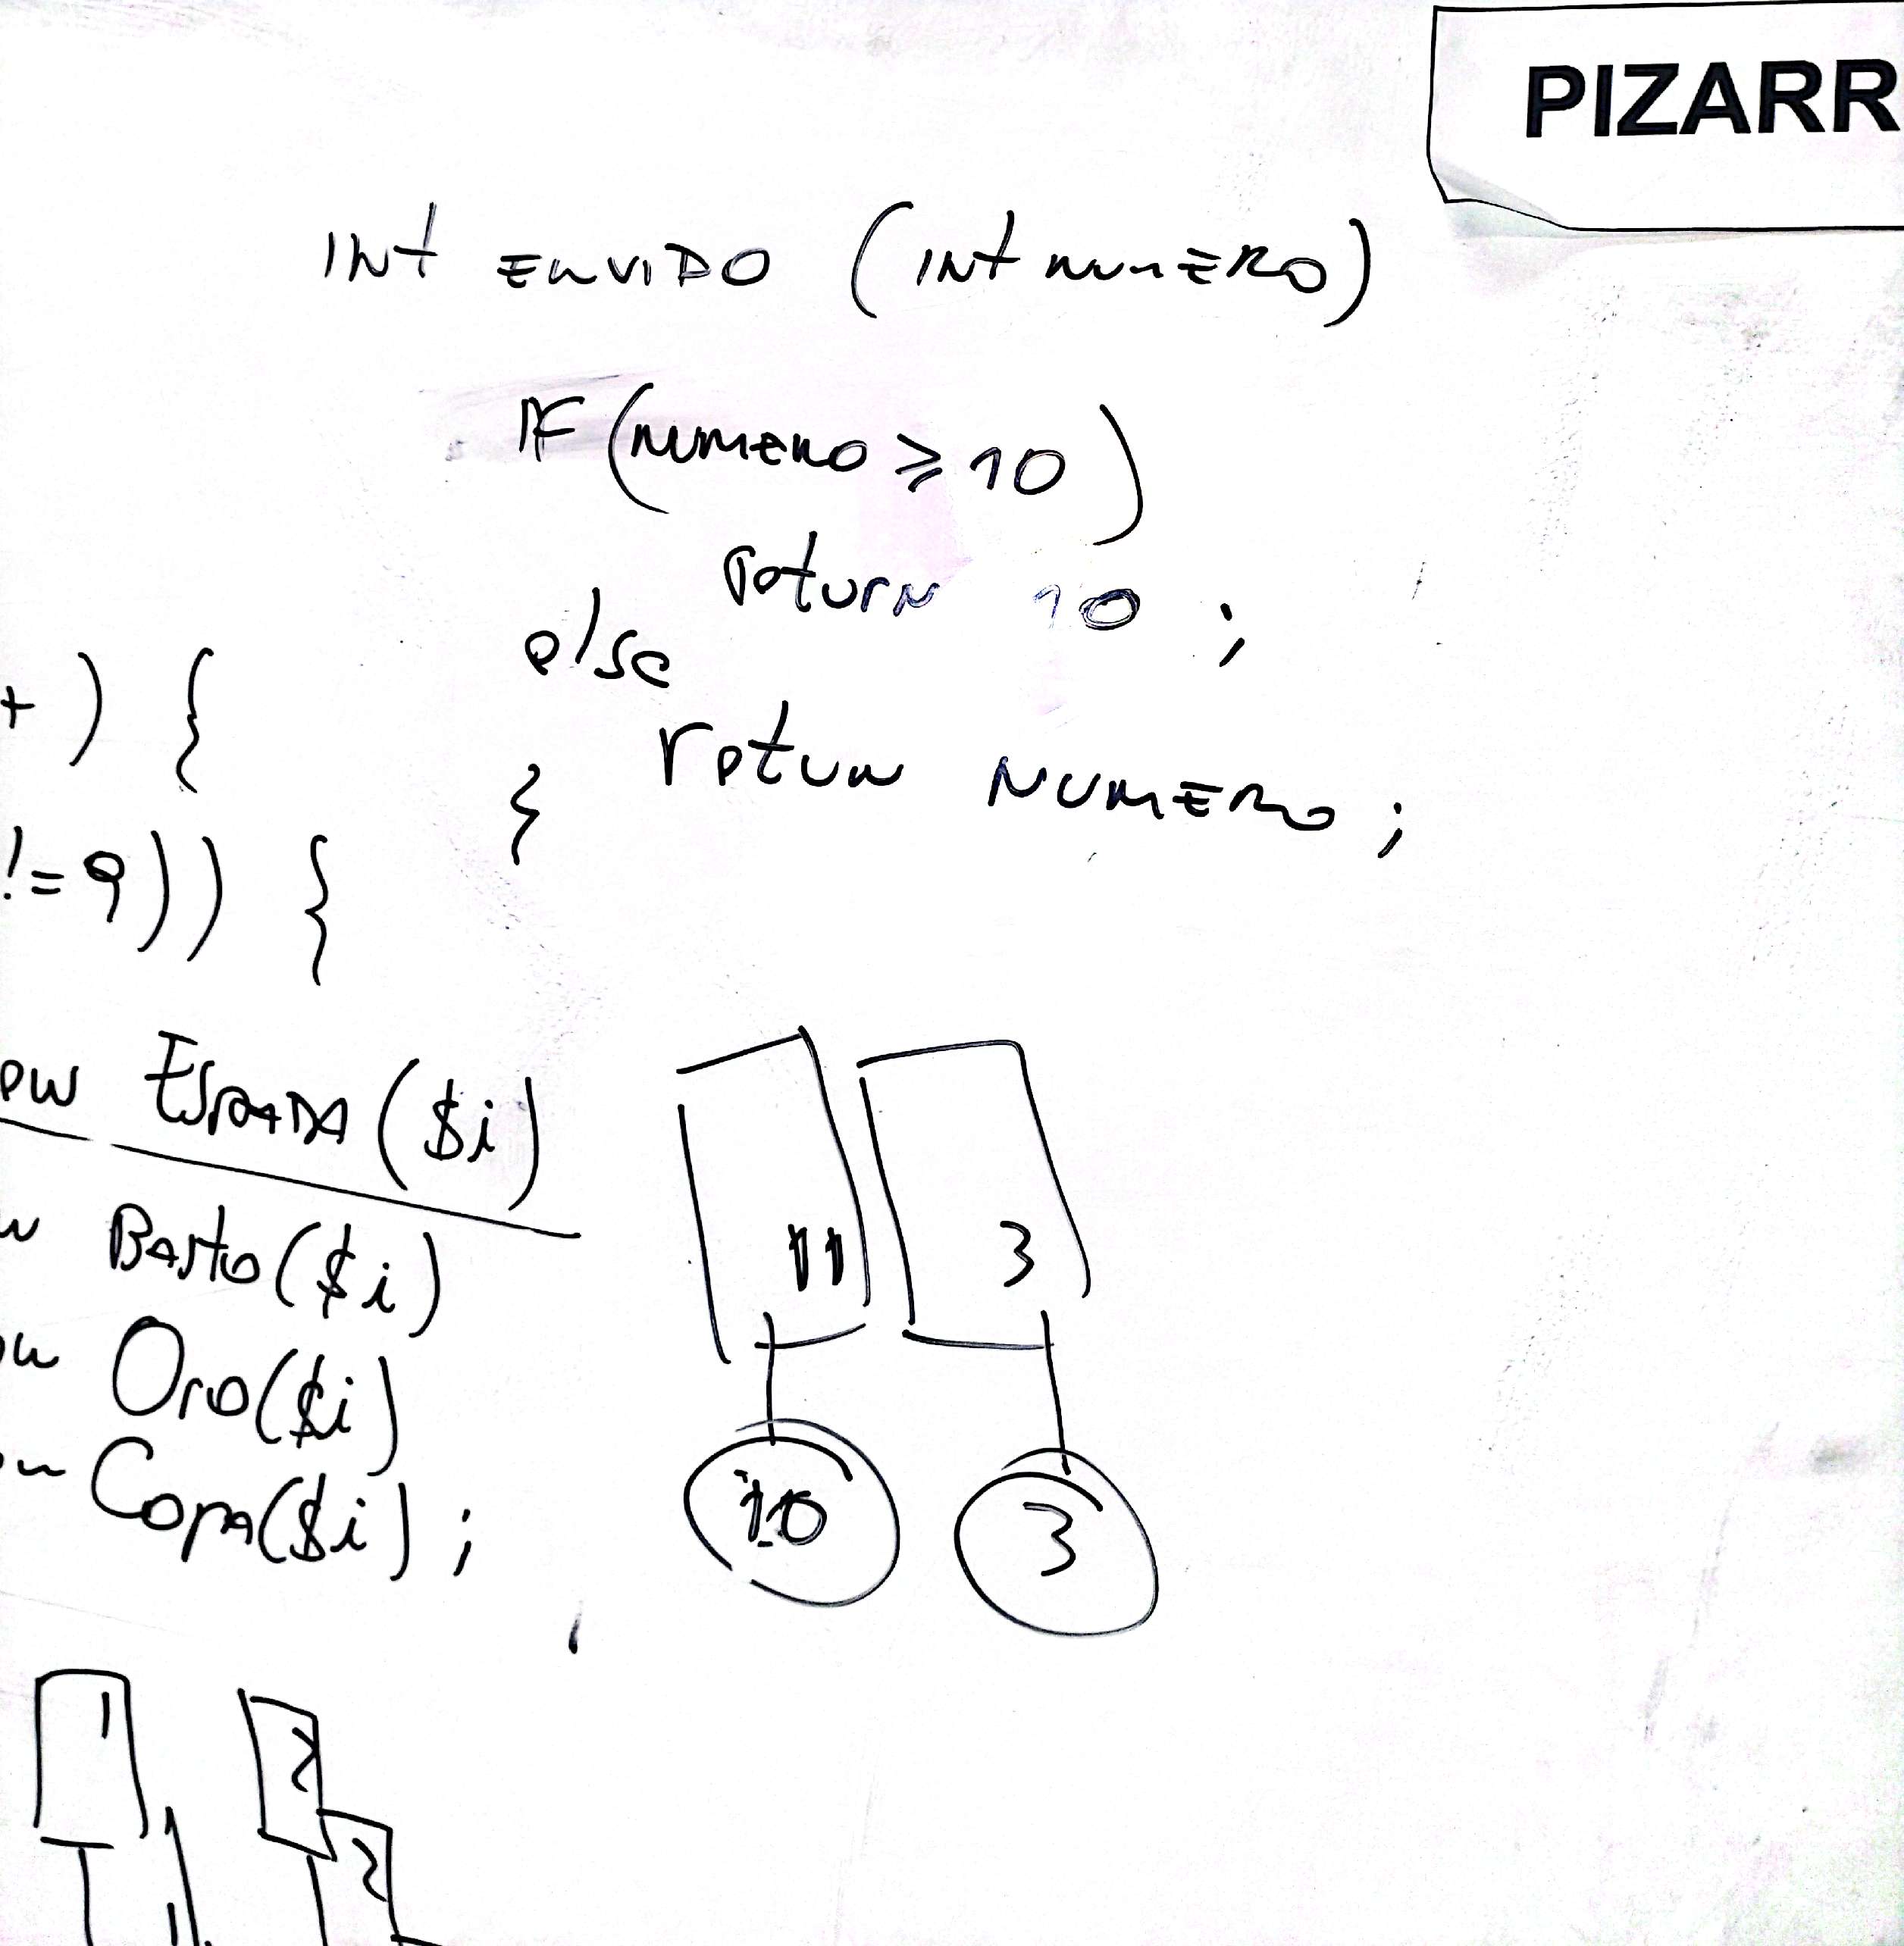 PIZARR
INT ENVIDO (INT NUMERO)
IF (NUMERO ≥ 10)
return 10 ;
else
return NUMERO ;
}
+ ) {
!= 9)) {
ew ESPADA($i)
w BASTO($i)
ew Oro($i)
ew COPA($i) ;
11 3
10 3
1 2
2
1